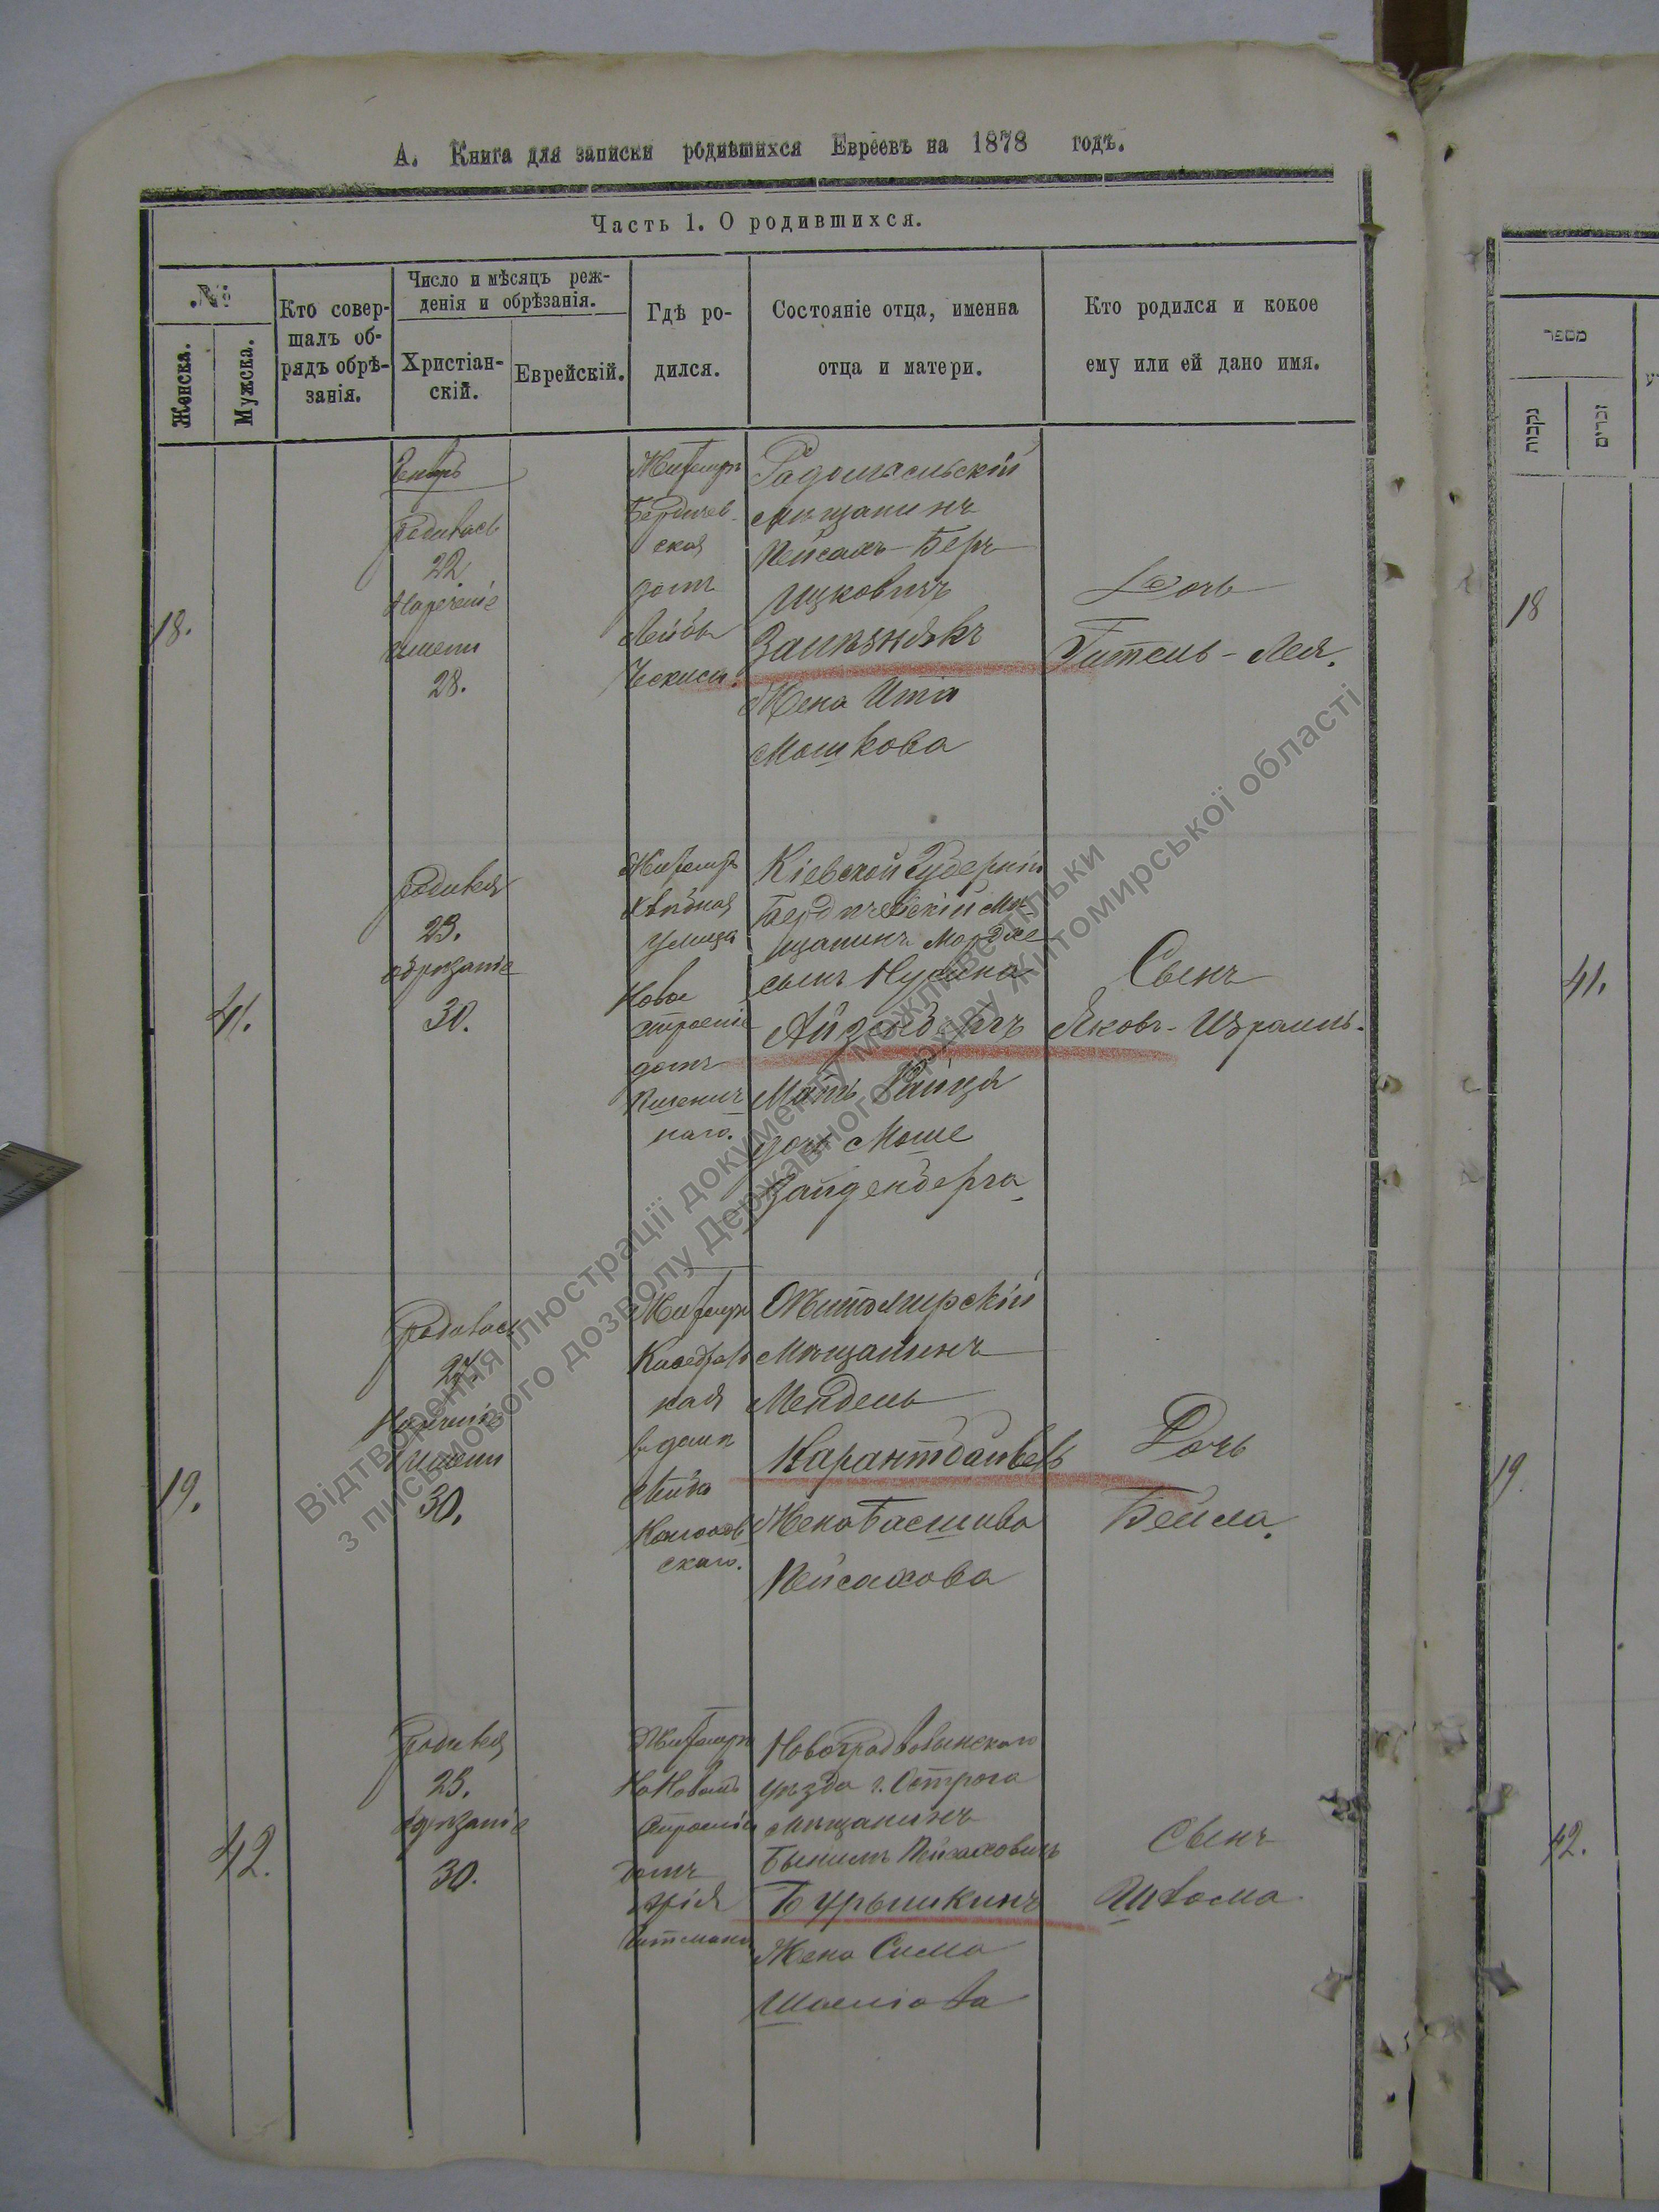 А. Книга для записки родившихся Евреевъ на 1878 годъ.
Часть 1. О родившихся.
№
Женска.
Мужска.
Кто совер-
шалъ об-
рядъ обрѣ-
занія.
Число и мѣсяцъ реж-
денія и обрѣзанія.
Христіан-
скій.
Еврейскій.
Гдѣ ро-
дился.
Состояніе отца, именна
отца и матери.
Кто родился и кокое
ему или ей дано имя.
18.
Родилась
22
Нареченіе
имени
28.
Житомиръ
Бердичев-
ская
домъ
Лейбы
Радомысльскій
мѣщанинъ
Пейсахъ-Беръ
Ицковичъ
Жена Итя
Мошкова
Дочь
Гитель-Лея.
41.
Родился
23.
обрѣзаніе
30.
Житомиръ
улица
Новое
строеніе
домъ
Кіевской Губерніи
Бердичевскій мѣ-
щанинъ Мордко
сынъ Нухима
Айзенбергъ
Мать
дочь Моше
Зайденберга
Сынъ
Яковъ-Израиль.
19.
Родилась
27.
Нареченіе
имени
30.
Житомиръ
Каѳедраль
ная
в домѣ
скаго.
Житомирскій
мѣщанинъ
Мендель
Жена Басшива
Пейсахова
Дочь
Бейла.
42.
Родился
23.
Обрѣзаніе
30.
Житомиръ
На Новомъ
строеніи
домъ
Новоградволынскаго
уѣзда г. Острога
мѣщанинъ
Пейсаховичъ
Бурышкинъ
Жена Сима
Сынъ
Шлома
מספר
נקבות
זכרים
18
41.
19.
42.
Відтворення ілюстрації документу можливе тільки
з письмового дозволу Державного архіву Житомирської області